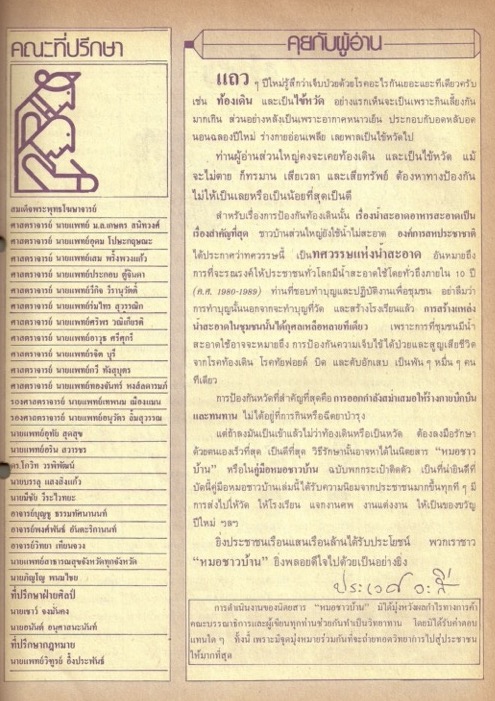 คณะที่ปรึกษา
สมเด็จพระพุทธโฆษาจารย์
ศาสตราจารย์ นายแพทย์ ม.ล.เกษตร สนิทวงศ์
ศาสตราจารย์ นายแพทย์อุดม โปษะกฤษณะ
ศาสตราจารย์ นายแพทย์เสม พริ้งพวงแก้ว
ศาสตราจารย์ นายแพทย์ประกอบ ตู้จินดา
ศาสตราจารย์ นายแพทย์วีกิจ วีรานุวัตติ์
ศาสตราจารย์ นายแพทย์ร่มไทร สุวรรณิก
ศาสตราจารย์ นายแพทย์ศรีพร วณิเกียรติ
ศาสตราจารย์ นายแพทย์อาวุธ ศรีศุกรี
ศาสตราจารย์ นายแพทย์จิต บุรี
ศาสตราจารย์ นายแพทย์กวี ทังสุบุตร
ศาสตราจารย์ นายแพทย์ทองจันทร์ หงส์ลดารมภ์
รองศาสตราจารย์ นายแพทย์เทพนม เมืองแมน
รองศาสตราจารย์ นายแพทย์อนุวัตร ลิ้มสุวรรณ
นายแพทย์อุทัย สุดสุข
นายแพทย์อริน
ดร.โกวิท วรพิพัฒน์
นายบรรลุ
นายมีชัย วีระไวทยะ
อาจารย์บุญชู ธรรมทัศนานนท์
อาจารย์พงศ์พันธ์
อาจารย์วิทยา เทียนจวง
นายแพทย์สาธารณสุขจังหวัดทุกจังหวัด
นายภิญโญ พนมไชย
ที่ปรึกษาฝ่ายศิลป์
นายเชาว์ จงมั่นคง
นายอนันต์ อนุศาสนะนันท์
ที่ปรึกษากฎหมาย
นายแพทย์วิฑูรย์ อึ้งประพันธ์
คุยกับผู้อ่าน
แถว ๆ ปีใหม่รู้สึกว่าเจ็บป่วยด้วยโรคอะไรกันเยอะแยะทีเดียวครับ
เช่น ท้องเดิน และเป็นไข้หวัด อย่างแรกเห็นจะเป็นเพราะกินเลี้ยงกัน
มากเกิน ส่วนอย่างหลังเป็นเพราะอากาศหนาวเย็น ประกอบกับอดหลับอด
นอนฉลองปีใหม่ ร่างกายอ่อนเพลีย เลยพาลเป็นไข้หวัดไป
ท่านผู้อ่านส่วนใหญ่คงจะเคยท้องเดิน และเป็นไข้หวัด แม้
จะไม่ตาย ก็ทรมาน เสียเวลา และเสียทรัพย์ ต้องหาทางป้องกัน
ไม่ให้เป็นเลยหรือเป็นน้อยที่สุดเป็นดี
สำหรับเรื่องการป้องกันท้องเดินนั้น เรื่องน้ำสะอาดอาหารสะอาดเป็น
เรื่องสำคัญที่สุด ชาวบ้านส่วนใหญ่ยังใช้น้ำไม่สะอาด องค์การสหประชาชาติ
ได้ประกาศว่าทศวรรษนี้ เป็นทศวรรษแห่งน้ำสะอาด อันหมายถึง
การที่จะรณรงค์ให้ประชาชนทั่วโลกมีน้ำสะอาดใช้โดยทั่วถึงภายใน 10 ปี
(ค.ศ. 1980-1989) ท่านที่ชอบทำบุญและปฏิบัติงานเพื่อชุมชน อย่าลืมว่า
การทำบุญนั้นนอกจากจะทำบุญที่วัด และสร้างโรงเรียนแล้ว การสร้างแหล่ง
น้ำสะอาดในชุมชนนั้นได้กุศลเหลือหลายทีเดียว เพราะการที่ชุมชนมีน้ำ
สะอาดใช้อาจจะหมายถึง การป้องกันความเจ็บไข้ได้ป่วยและสูญเสียชีวิต
จากโรคท้องเดิน โรคทัยฟอยด์ บิด และตับอักเสบ เป็นพัน ๆ หมื่น ๆ คน
ทีเดียว
การป้องกันหวัดที่สำคัญที่สุดคือการออกกำลังสม่ำเสมอให้ร่างกายบึกบึน
และทนทาน ไม่ได้อยู่ที่การกินหรือฉีดยาบำรุง
แต่ถ้าลงมันเป็นเข้าแล้วไม่ว่าท้องเดินหรือเป็นหวัด ต้องลงมือรักษา
ด้วยตนเองเร็วที่สุด เป็นดีที่สุด วิธีรักษานั้นอาจหาได้ในนิตยสาร “หมอชาว
บ้าน” หรือในคู่มือหมอชาวบ้าน ฉบับพกกระเป๋าติดตัว เป็นที่น่ายินดีที่
บัดนี้คู่มือหมอชาวบ้านเล่มนี้ได้รับความนิยมจากประชาชนมากขึ้นทุกที ๆ มี
การส่งไปให้วัด ให้โรงเรียน แจกงานศพ งานแต่งงาน ให้เป็นของขวัญ
ปีใหม่ ฯลฯ
ยิ่งประชาชนเรือนแสนเรือนล้านได้รับประโยชน์ พวกเราชาว
“หมอชาวบ้าน” ยิ่งพลอยดีใจไปด้วยเป็นอย่างยิ่ง
ประเวศ วะสี
การดำเนินงานของนิตยสาร “หมอชาวบ้าน” มิได้มุ่งหวังผลกำไรทางการค้า
คณะบรรณาธิการและผู้เขียนทุกท่านช่วยกันทำเป็นวิทยาทาน โดยมิได้รับค่าตอบ
แทนใด ๆ ทั้งนี้ เพราะมีจุดมุ่งหมายร่วมกันที่จะถ่ายทอดวิทยาการไปสู่ประชาชน
ให้มากที่สุด